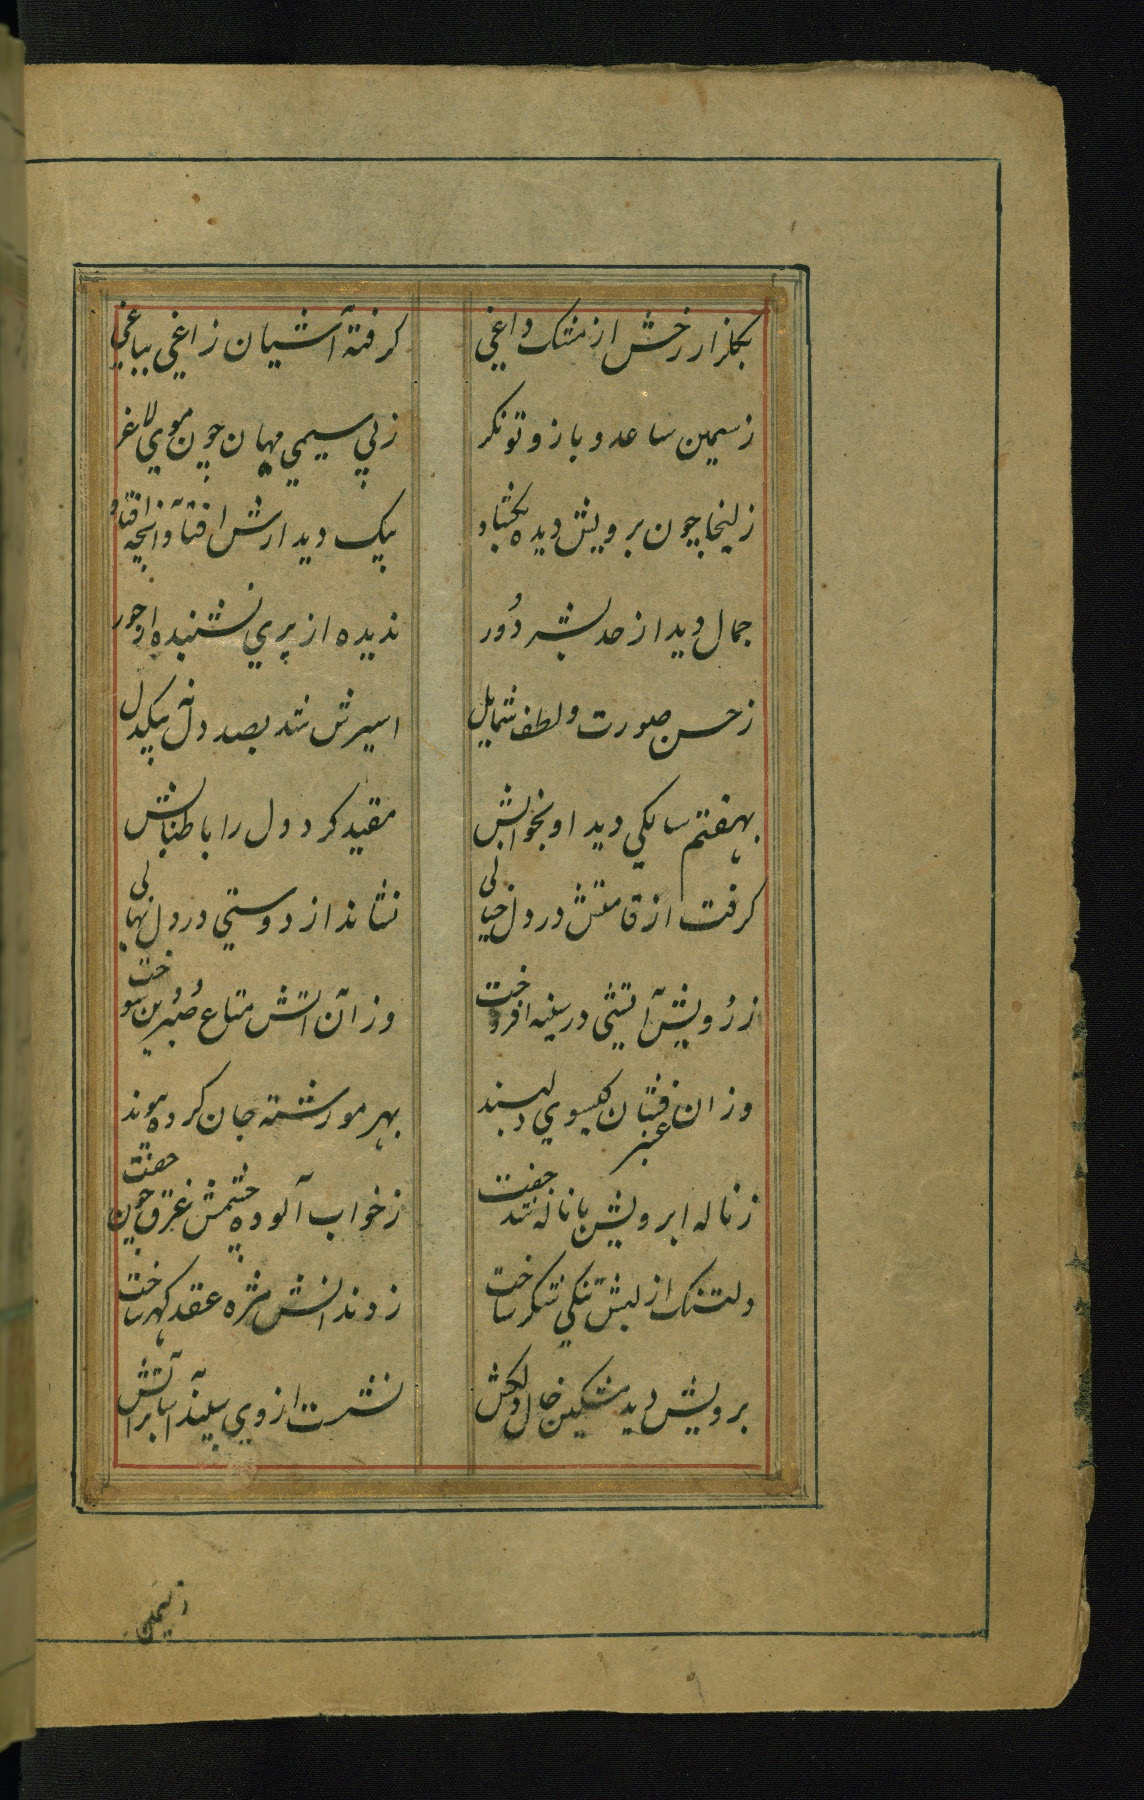 بكلزار رخش از مشك داغي كرفته آشيان زاغي بباغي
ز سيمين ساعد و بازو تونكر ز بي سيمي ميان چون موي لاغر
زليخا چون برويش ديده بكشاد بيك ديدارش افتاد آنچه افتاد
جمال ديد از حد بشر دُور نديده از پري نشنيده از حور
ز حسن صورت و لطف شمايل اسيرش شد بصد دل نه بيكدل
بهفتم سالكي ديد او بخوابش مقيد كرد دل را با طنابش
كرفت از قامتش در دل خيالى نشاند از دوستي در دل نهالى
ز رُويش آتشي در سينه افروخت وز آن آتش متاع صُبر و دين سوخت
وز ان عنبر فشان كيسوي دلبند بهر مو رشته جان كرده پيوند
ز ناله ابرويش با ناله شد جفت ز خواب آلوده چشمش غرق خون خفت
دلتنك از لبش تنكي شكر ساخت ز دندانش مژه عقد كهر ساخت
برويش ديد مشكين خال دلكش نشست از وي سپند آسا بر آتش
ز سيمين